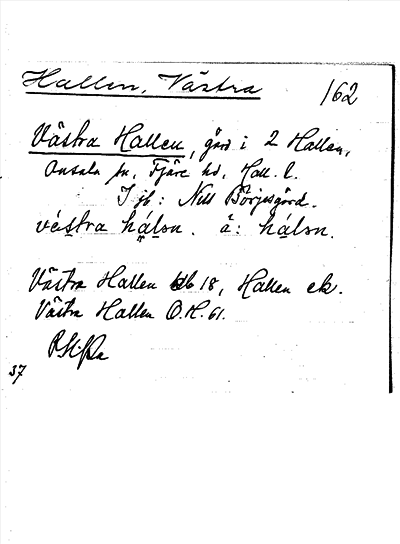 Hallen, Västra
162
Västra Hallen, gård i 2 Hallen,
Onsala sn, Fjäre hd, Hall. l.
I jb: Nils Börjesgård.
véstra hálən. å: hálən.
Västra Hallen jb 18, Hallen ek.
Västra Hallen O.H. 61.
37